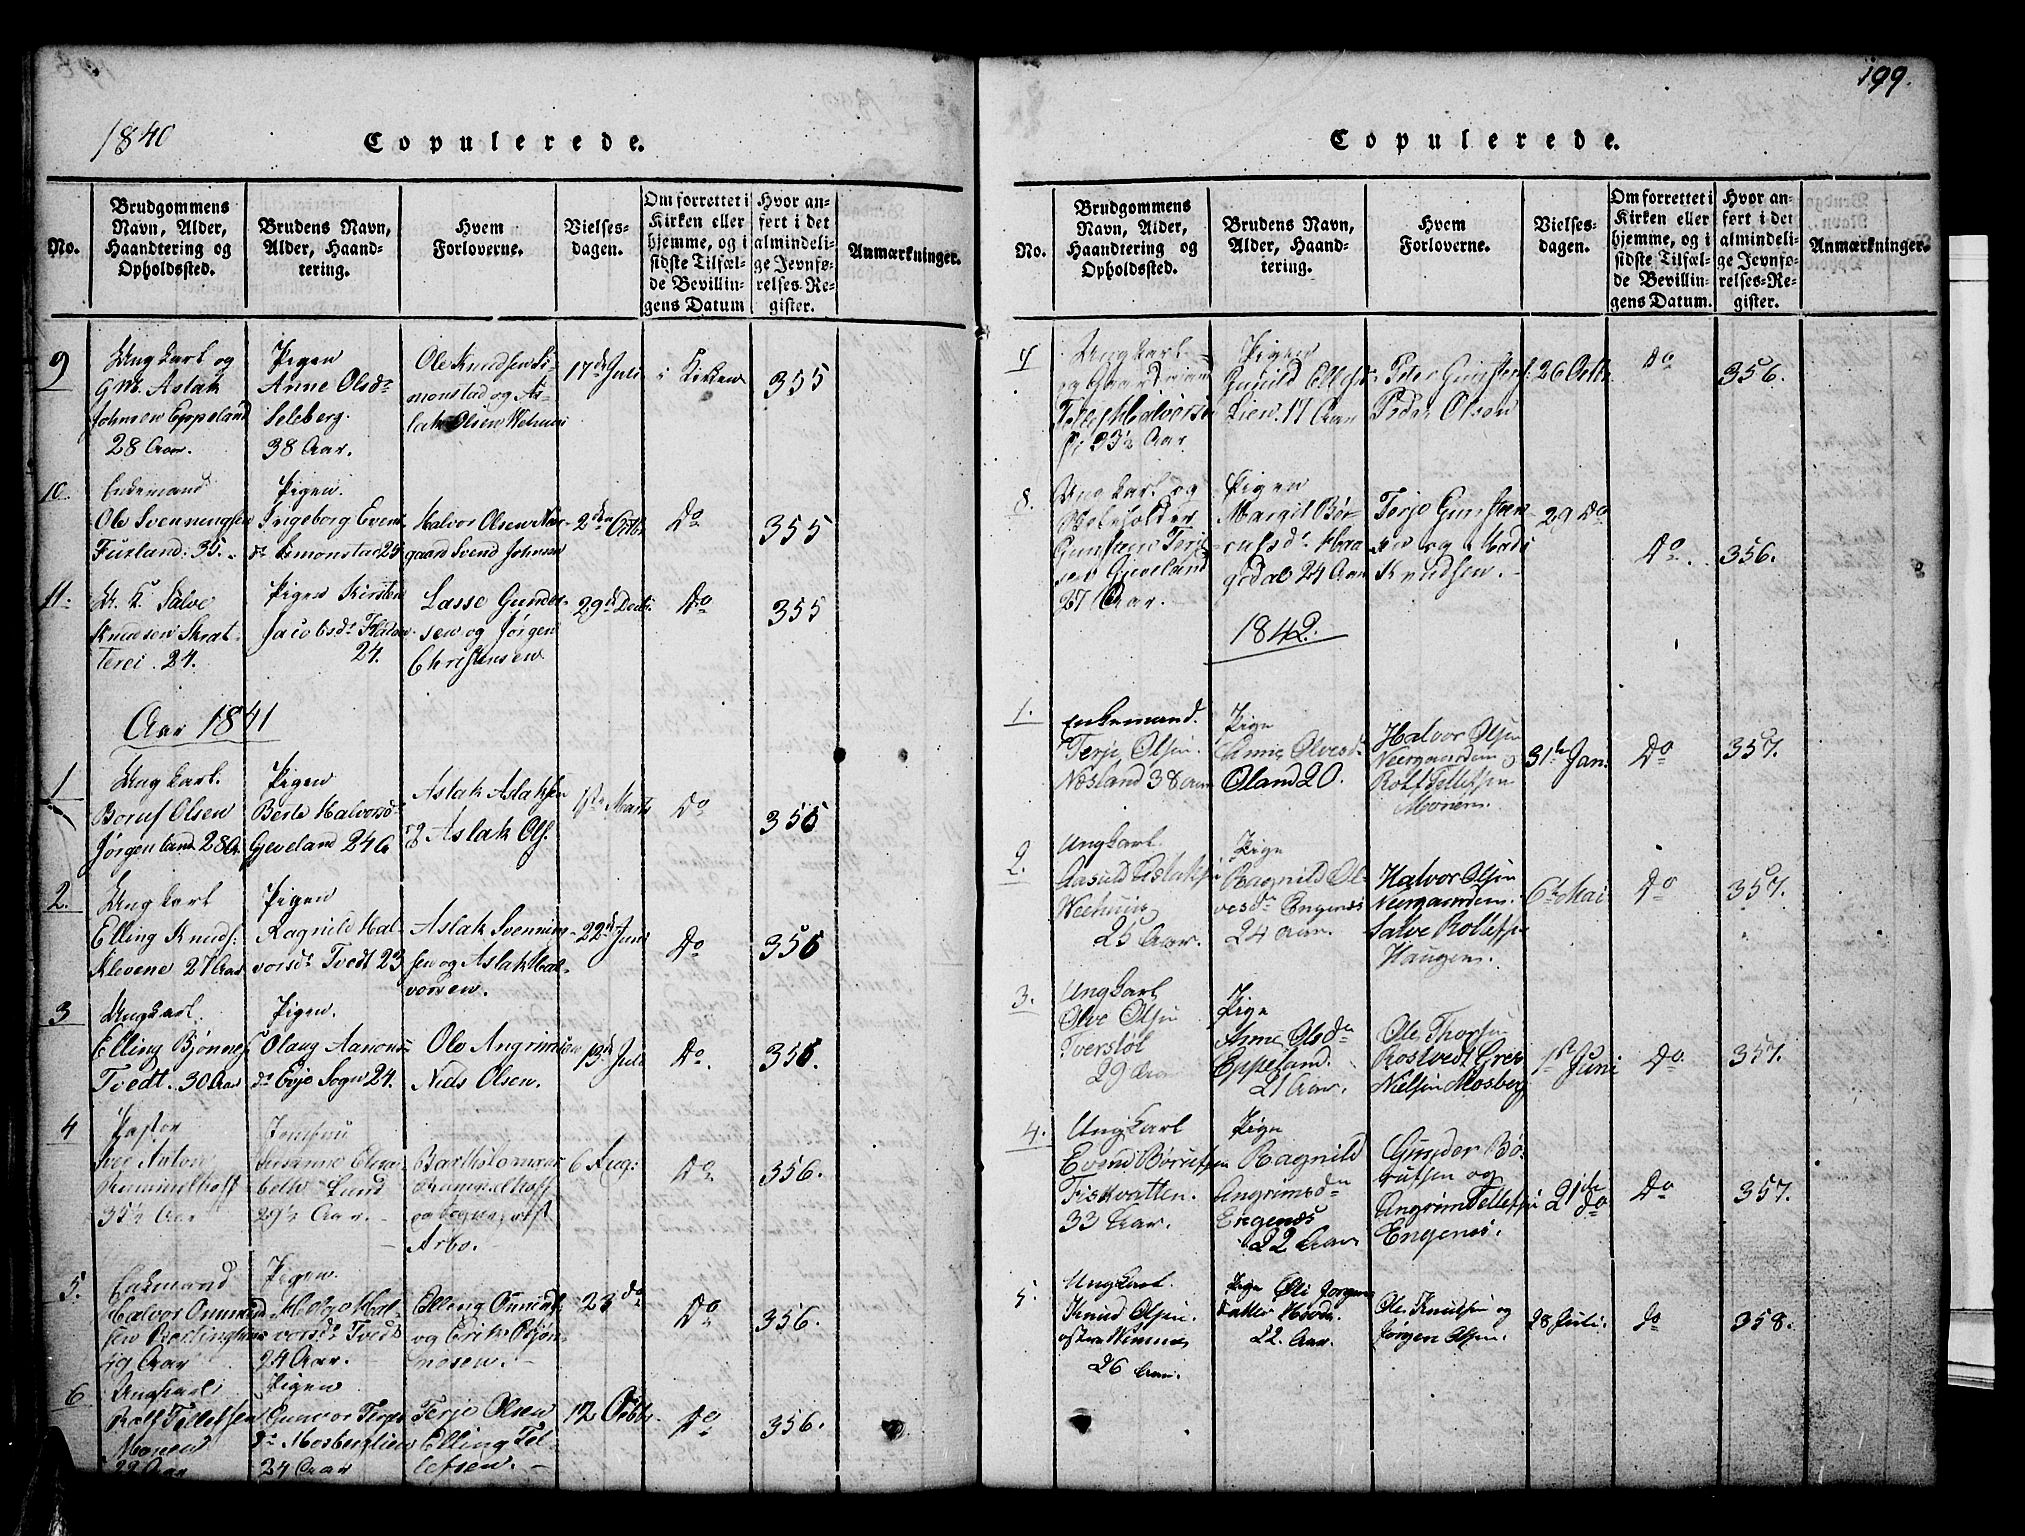 1840
Copulerede.
No.
Brudgommens
Navn, Alder,
Haandtering og
Opholdssted.
Brudens Navn,
Alder, Haand-
tering.
Hvem
Forloverne.
Vielses-
dagen.
Om forrettet i
Kirken eller
hjemme, og i
sidste Tilfæl-
de Bevillin-
gens Datum
Hvor an-
ført i det
almindeli-
ge Jevnfø-
relses-Re-
gister.
Anmærkninger.
9
Ungkarl og
Gm. Aslak
Johnsen Eppeland
28 Aar.
Pigen
Anne Olsdr
Seleberg.
38 Aar.
Ole Knudsen Si-
monstad og As-
lak Olsen
17de Juli
i Kirken
355
10
Enkemand
Ole Svenningsen
Fusland. 35.
Pigen.
Ingeborg Evens-
dr Simonstad 25
Halvor Olsen
gaard Svend Johnsen
2den Octbr
Do
355
11.
U. K. Salve
Knudsen Skrat-
terei. 24.
Pigen Kirsten
Jacobsdr
24.
Lasse Gunder-
sen og Jørgen
Christensen
29de Decbr.
Do
355
Aar 1841
1
Ungkarl.
Boruf Olsen
Jørgenland 28 A.
Pigen
Berte Halvorsd
Geveland 24
Aslak Aslaksen
og Aslak Ols.
1ste Marts
Do
355
2.
Ungkarl
Elling Knuds:
Klevene 27 Aar
Pigen
Ragnild Hal-
vorsdr Tvedt 23
Aslak Svennings-
sen og Aslak Hal-
vorsen.
22de Juni
Do
356
3
Ungkarl.
Elling Bjønnes
Tvedt. 30 Aar
Pigen.
Olaug Aanons-
dr Evje Sogn 24.
Ole Angrimsen
Niels Olsen.
13de Juli
Do.
356.
4
Pastor
Iver Anton
Rummelhoff
35½ Aar
Jomfru
Susanne
beth Lund
29½ Aar.
Bartholomæus
Rummelhoff
og
Arbo.
6 Aug:
Do
356.
5.
Enkemand
Halvor Omund-
sen
Aar
Pigen.
Helge Hal-
vorsdr Tveds
24 Aar.
Elling Omunds.
og Erik Bjøn-
nesen.
23 do
Do
356.
6
Ungkarl
Rolf Tellefsen
Monen
22 Aar
Pigen
Gunvor Terjes
dr Mosberglien
24 Aar
Terje Olsen
Elling Tel-
lefsen.
12 Octbr.
Do
356.
199.
Copulerede.
No.
Brudgommens
Navn, Alder,
Haandtering og
Opholdssted.
Brudens Navn,
Alder, Haand-
tering.
Hvem
Forloverne.
Vielses-
dagen.
Om forrettet i
Kirken eller
hjemme, og i
sidste Tilfæl-
de Bevillin-
gens Datum.
Hvor an-
ført i det
almindeli-
ge Jevnfø-
relses-Re-
gister.
Anmærkninger.
7
Ungkarl
og Gaardmand
Halvorsen
33½ Aar
Pigen
Gunild Ellefsd
Lien. 17 Aar
Peter Gunsten:
Peder Olsen
26 Octbr
Do
356.
8.
Ungkarl og
Gunsten Terje-
sen Gjeveland
27 Aar.
Pigen
Margit Bø-
rufsdr Haa-
gedal 24 Aar
Terje Gunsten-
sen og Mads
Knudsen.
29 Do
Do.
356.
1842.
1.
Enkemand.
Terje Olsen.
Næsland 38 Aar
Pige
Anne Olvesdr
Øland 20.
Halvor Olsen
Neergaarden
Rolf Tellefsen
Monen.
31te Jan:
Do
357.
2.
Ungkarl.
Aasuld Aslaksen
Weehuus
25 Aar.
Pige
Ragnild Ol-
vesdr Engenes
24 Aar.
Halvor Olsen
Neergaarden.
Salve Rollefsen
Haugen.
6te Mai
Do
357.
3.
Ungkarl
Olve Olsen
Tverstøl
29 Aar
Pige
Anne Olsdr
Eppeland.
21 Aar.
Ole Thorsen
Rostvedt Gres
Nielsen Mosberg
1ste Juni
Do
357.
4.
Ungkarl
Evend Børufsen
Fiskvatten.
33 Aar.
Pige
Ragnild
Angrimsdr
Engenes
22 Aar
Gunder Bø-
rufsen og
Angrim Tellefsen
Engenes.
21de do
Do
357.
5.
Ungkarl.
Knud Olsen
26 Aar.
Pige Oli Jørgens
datter Hovde.
22. Aar.
Ole Knudsen og
Jørgen Olsen.
28 Juli.
Do
358.